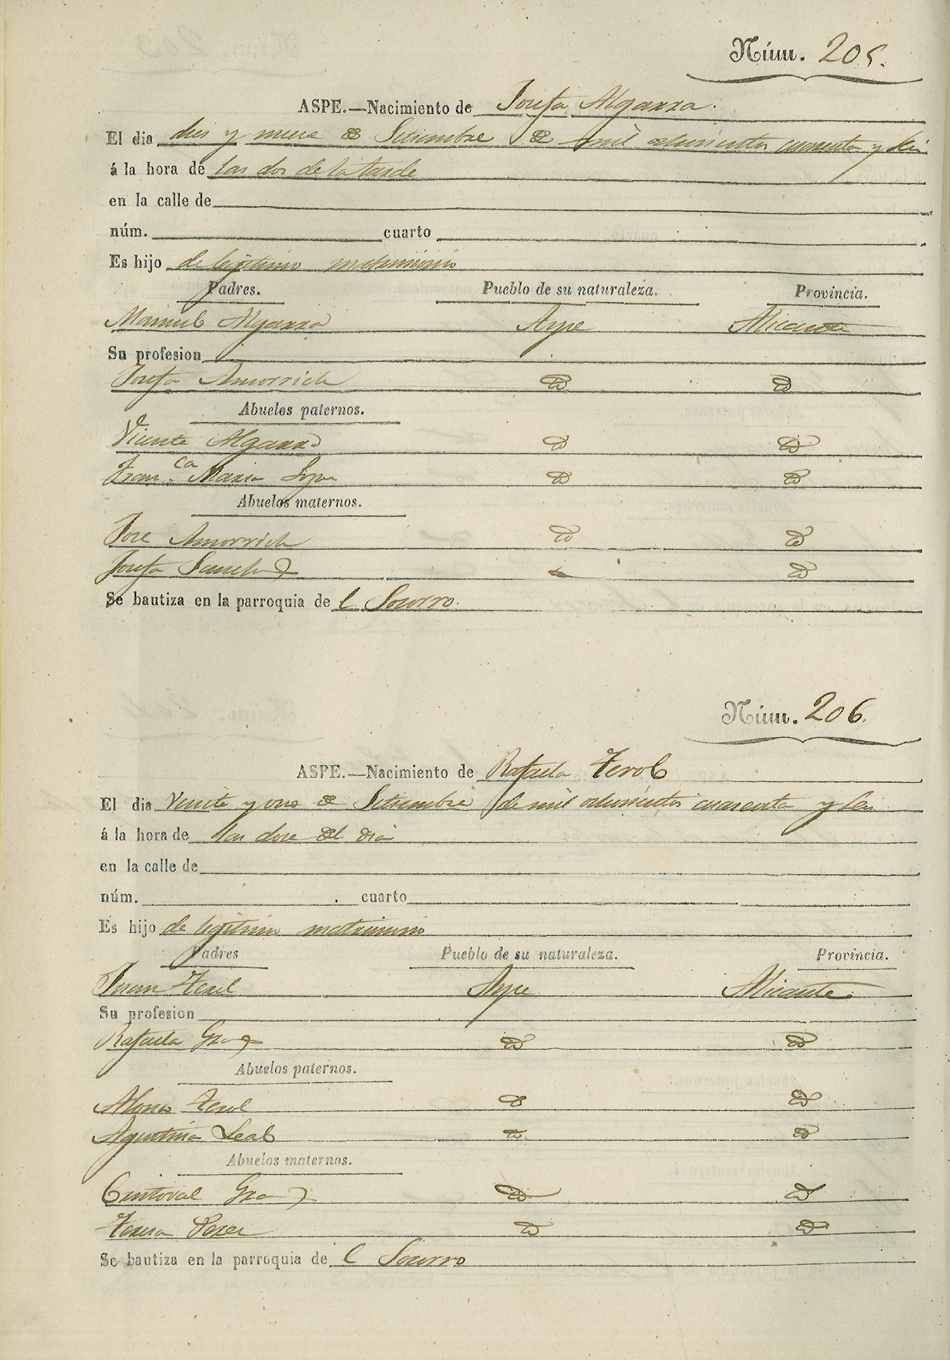 Núm. 205.
ASPE.—Nacimiento de Josefa Algarra.
El dia dies y nueve de Setiembre de mil ochocientos cuarenta y seis
á la hora de las dos de la tarde
en la calle de
núm. cuarto
Es hijo de legitimo matrimonio
Padres. Pueblo de su naturaleza. Provincia.
Manuel Algarra Aspe Alicante
Su profesion
Josefa Amorrich id id
Abuelos paternos.
Vicente Algarra id id
Fran.ca Maria id id
Abuelos maternos.
Jose Amorrich id id
Josefa Sanchez id
Se bautiza en la parroquia de l Socorro.
Núm. 206.
ASPE.—Nacimiento de Rafaela Terol
El dia veinte y uno de Setiembre de mil ochocientos cuarenta y seis
á la hora de las doce del dia
en la calle de
núm. cuarto
Es hijo de legitimo matrimonio
Padres Pueblo de su naturaleza. Provincia.
Juan Terol Aspe Alicante
Su profesion
Rafaela id id
Abuelos paternos.
Alonso Terol id id
Agustina Leal id id
Abuelos maternos.
Cristoval id id
Teresa Perez id id
Se bautiza en la parroquia de l Socorro